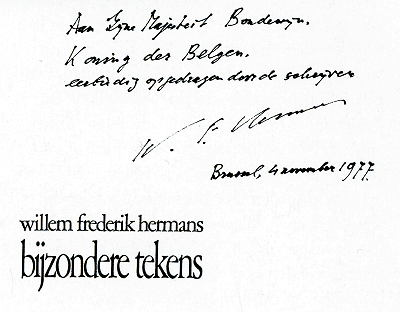 Aan Zijne Majesteit Boudewijn.
Koning der Belgen.
eerbiedig opgedragen door de schrijver
W. F. Hermans
Brussel, 4 november 1977.
willem frederik hermans
bijzondere tekens